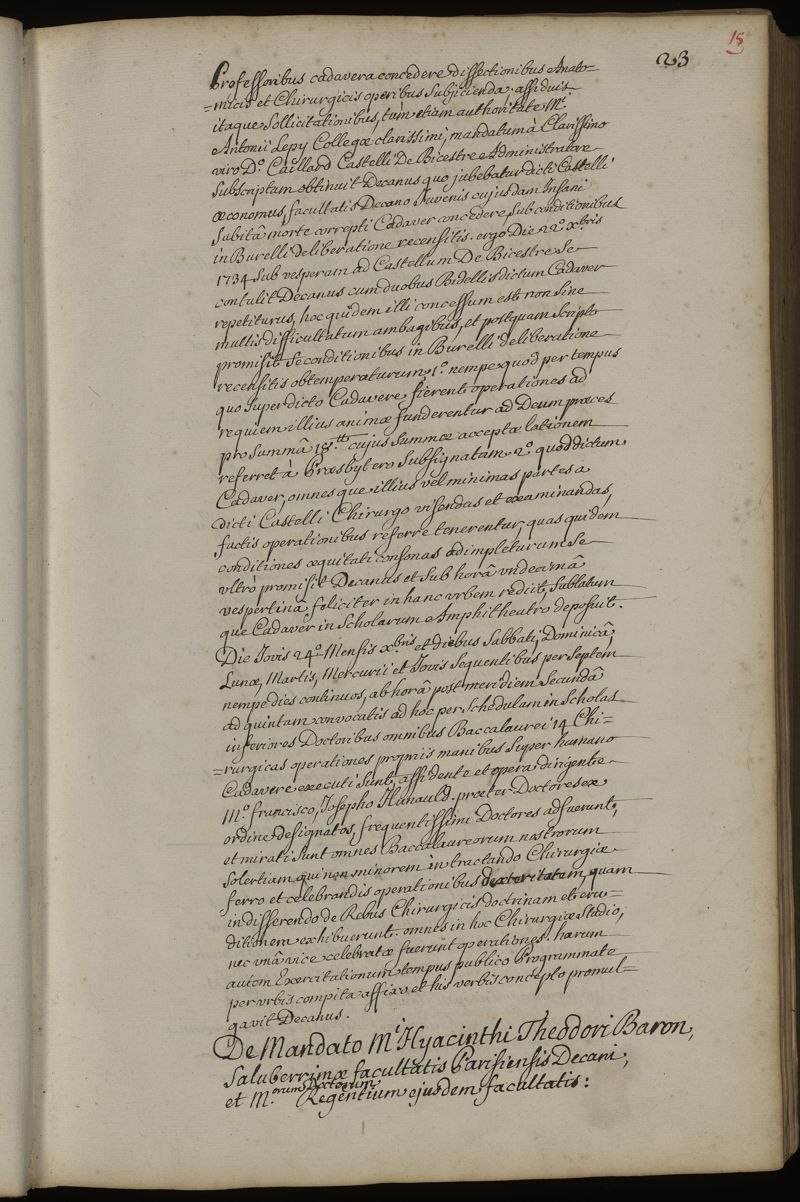 18
23
Professoribus cadavera concedere dissectionibus Anato=
=micis et Chirurgicis operibus Subjicienda. assiduis
itaque Sollicitationibus, tum etiam authoritate M.i
Antonii Lepy Collegæ clarissimi, mandatum à Clarissimo
viro D.o Caillard Castelli De Bicestre Administratore
Subscriptam obtinuit Decanus quo jubebatur dicti Castelli
œconomus, facultatis Decano Juvenis cujusdam Insani
Subitâ morte correpti Cadaver concedere, Sub conditionibus
in Burelli deliberatione recensitis. ergo Die 22.o x.bris
1734 Sub vesperam ad Castellum De Bicestre Se
contulit Decanus cum duobus Bidellis dictum Cadaver
repetiturus, hoc quidem illi concessum est non Sine
multis difficultatum ambagibus, et postquam Scripto
promisit Se conditionibus in Burelli deliberatione
recensitis obtemperaturum. 1.o nempe quod per tempus
quo Super dicto Cadavere fierent operationes ad
requiem illius animæ funderentur ad Deum præces
pro Summâ 18.tt cujus Summæ acceptæ lationem
referret à Præsbytero Subsignatam. 2.o quod dictum
Cadaver, omnesque illius vel minimas partes a
dicti Castelli Chirurgo visendas et examinandas,
factis operationibus referre tenerentur, quas quidem
conditiones æquitati consonas adimpleturum Se
vltrò promisit Decanus et Sub horâ vndecimâ
vespertinâ feliciter in hanc vrbem rediit, Sublatum
que Cadaver in Scholarum Amphitheatro deposuit.
Die Jovis 24.o Mensis x.bris et diebus Sabbati, Dominicâ,
Lunæ, Martis, Mercurii et Jovis Sequentibus per Septem
nempe dies continuos, ab horâ post meridiem Secundâ
ad quintam convocatis ad hoc per Schedulam in Scholas
inferiores Doctoribus omnibus Baccalaurei 14 Chi=
=rurgicas operationes propriis manibus Super humano
Cadavere executi Sunt, assidente et opera dirigente
M.o francisco, Josepho Hunauld. præter Doctores ex
ordine designatos, frequentissimi Doctores adfuerunt,
et mirati Sunt omnes Baccalaureorum nostrorum
Solertiam qui non minorem in tractando Chirurgiæ
ferro et celebrandis operationibus dexteritatem, quam
in disserendo de Rebus Chirurgicis doctrinam et eru=
ditionem exhibuerunt. omnes in hoc Chirurgiæ Studio,
nec vnâ vice celebratæ fuerunt operationes. harum
autem Exercitationum tempus publico Programmate
per vrbis compita affixo et his verbis concepto promul=
gavit Decanus.
De Mandato M.i Hyacinthi Theodori Baron,
Saluberrimæ facultatis Parisiensis Decani,
et M.orum Doctorum Regentium ejusdem facultatis: